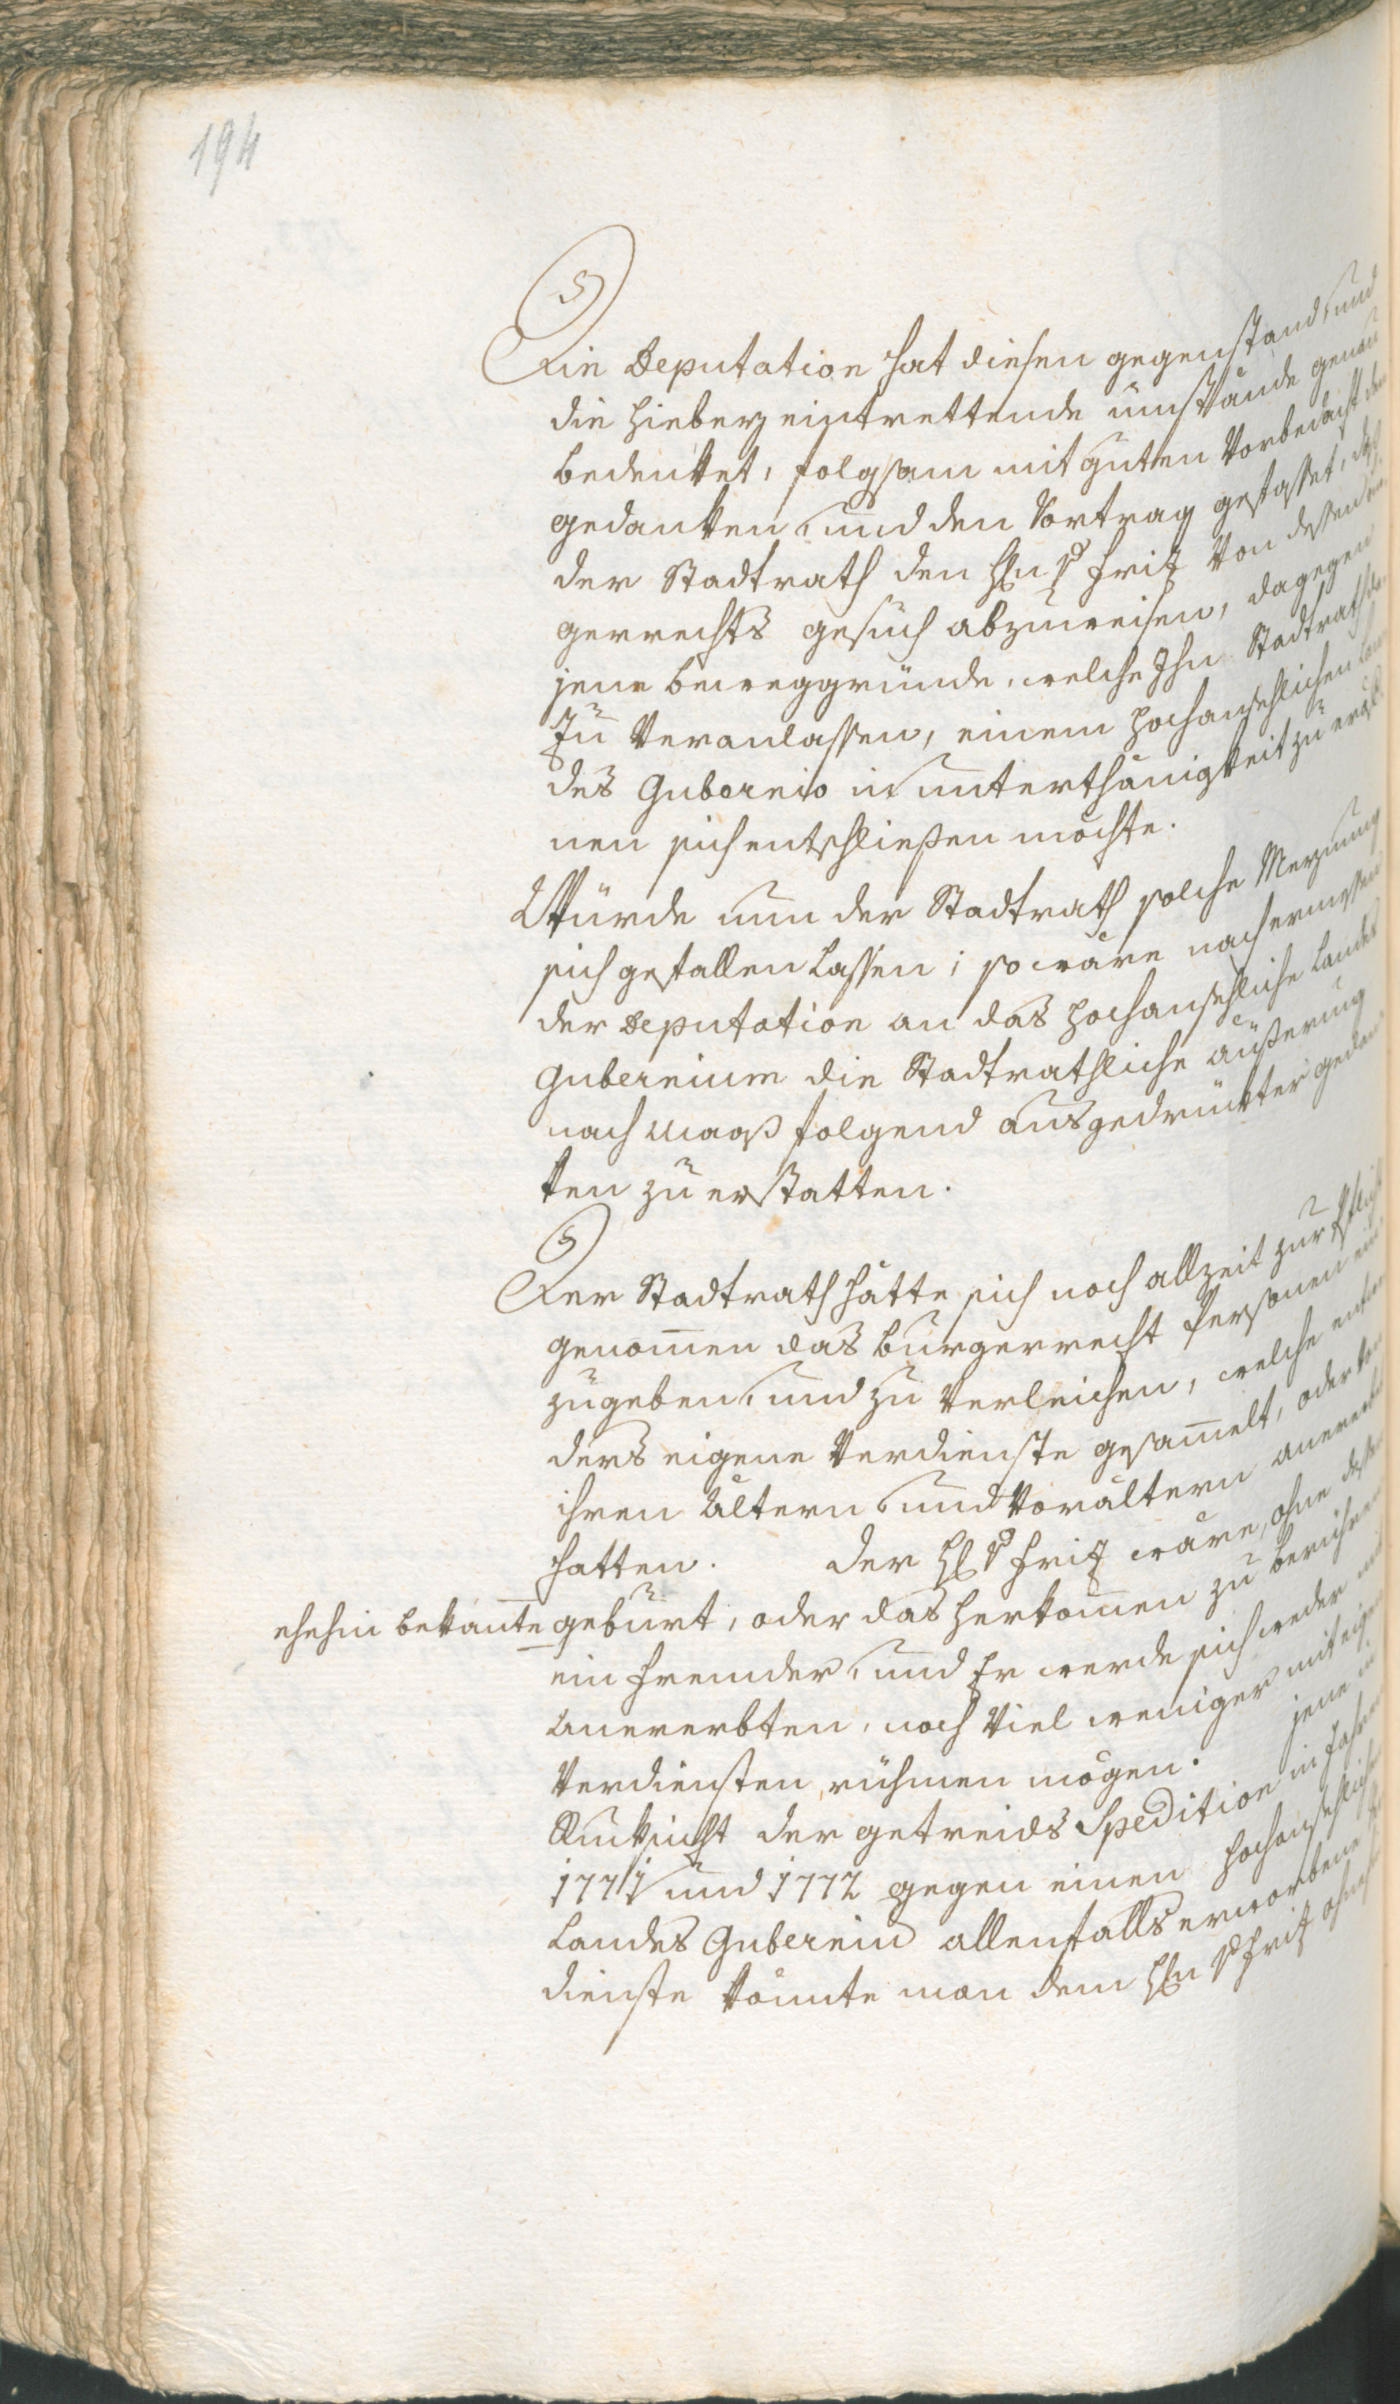 194
Die Deputation hat diesen gegenstand, und
die hiebey eintrettende umstände genau
bedenket, folgsam mit guten Vorbedacht den
gedanken, und den Vortrag gefasset, daß
der Stadtrath den Hln v Friz von dessen
gerrechts gesuch abzuweisen, dagegen
jene beweggründe, welche Ihn Stadtrath
zu veranlassen, einem hochansehlichen Lan
des Gubernio in unterthänigkeit zu eröf
nen sich entschließen möchte.
Würde nun der Stadtrath solche Meynung
sich gefallen lassen; so wäre nach ermessen
der Deputation an das hochansehliche Landes
Gubernium die Stadtrathliche äußerung
nach maaß folgend ausgedruckter gedan
ken zu erstatten.
Der Stadtrath hätte sich noch allzeit zur Pflicht
genommen das burgerrecht Personen ein
zugeben, und zu verleichen, welche entwe
ders eigene Verdienste gesammelt, oder von
ihren ältern, und Vorältern anererbt
hatten. der Hl v Friz wäre, ohne dessen
ehehin bekannte geburt, oder das herkommen zu berühren
ein fremder, und Er werde sich weder mit
anererbten, noch viel weniger mit eigenen
Verdiensten rühmen mögen. jene in
Rucksicht der getreids Spedition in Jahren
1771 und 1772 gegen einen hochansehlichen
Landes Guberniu allenfalls erworbene Ver
dienste könnte man dem Hln v Friz